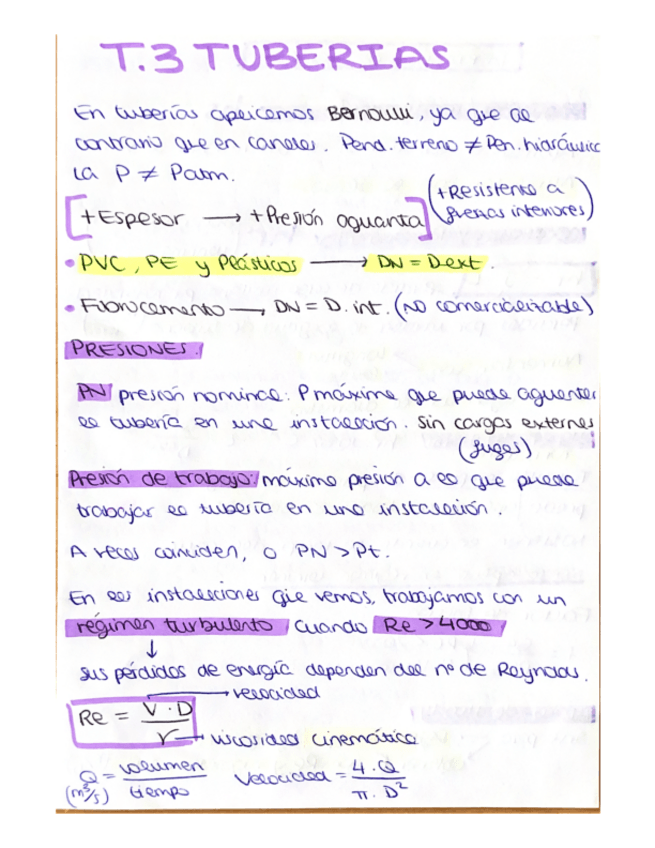 T.3 TUBERIAS
En tuberías aplicamos Bernoulli, ya que al
contrario que en canales. Pend. terreno ≠ Pen. hidráulica
La P ≠ Patm.
+Espesor → +Presión aguanta (+Resistente a
fuerzas interiores)
• PVC, PE y Plásticos → DN = D.ext.
• Fibrocemento → DN = D. int. (NO comercializable)
PRESIONES.
PN presión nominal: P máxima que puede aguantar
la tubería en una instalación. Sin cargas externas
(fugas)
Presión de trabajo: máxima presión a la que puede
trabajar la tubería en una instalación.
A veces coinciden, o PN > Pt.
En las instalaciones que vemos, trabajamos con un
régimen turbulento cuando Re > 4000
↓
sus pérdidas de energía dependen del nº de Reynolds.
→ velocidad
Re = V · D / ν → viscosidad cinemática
Q (m³/s) = volumen / tiempo Velocidad = 4 · Q / π · D²